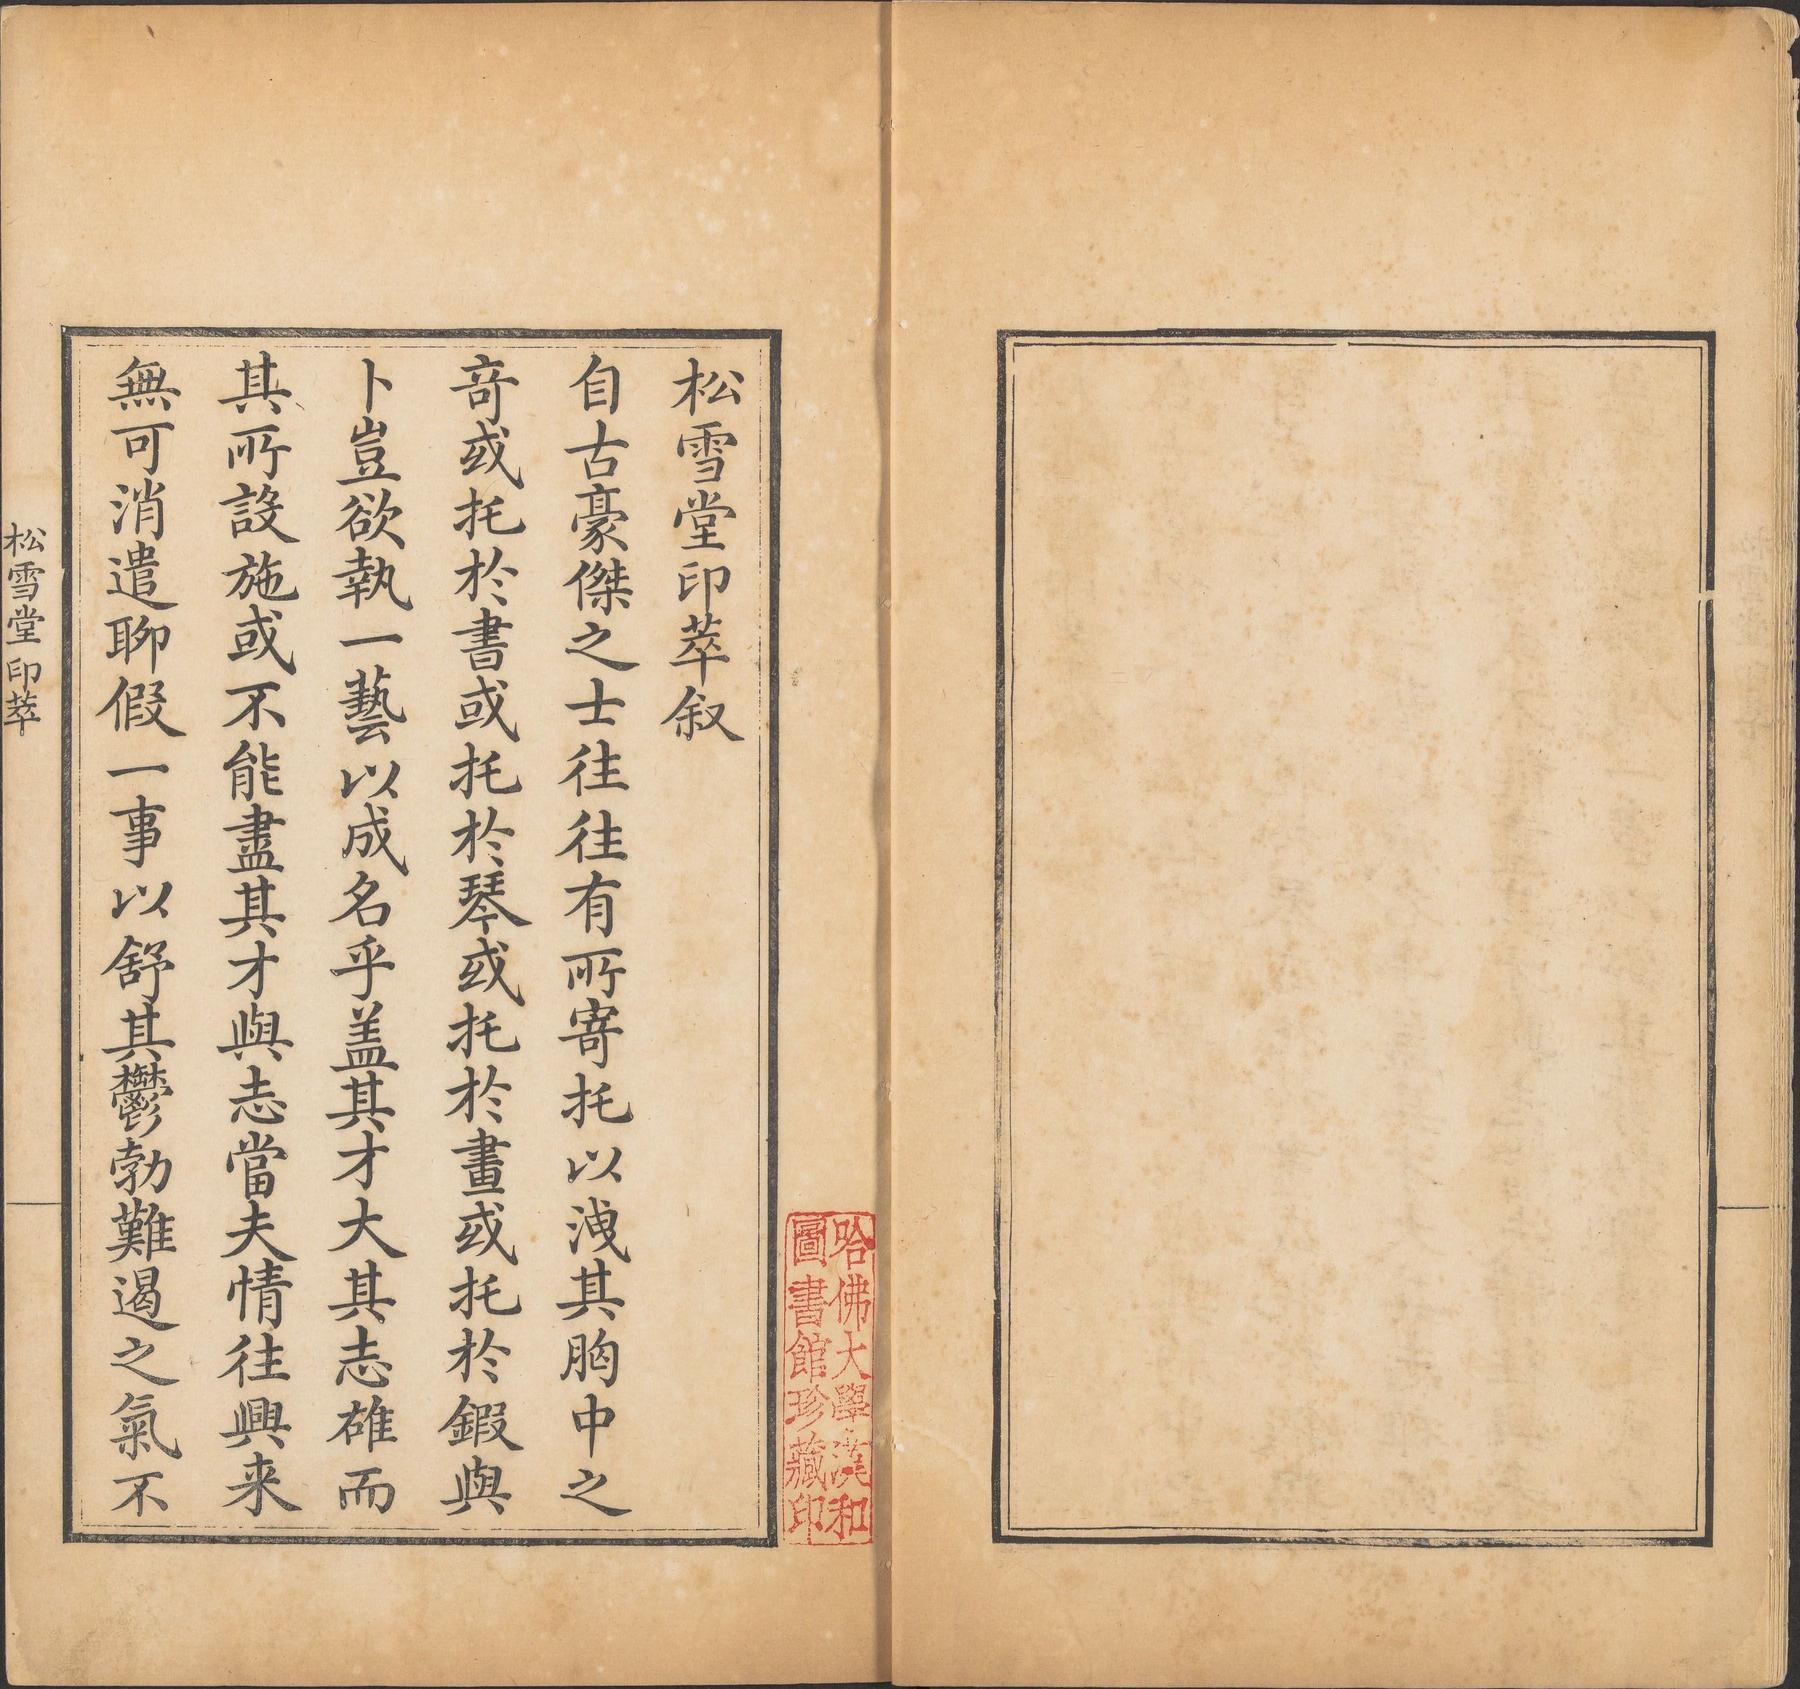 松雪堂印萃叙
自古豪傑之士往往有所寄托以洩其胸中之
竒或托於書或托於琴或托於畫或托於鍜與
卜豈欲執一藝以成名乎盖其才大其志雄而
其所設施或不能盡其才與志當夫情往興来
無可消遣聊假一事以舒其鬱勃難遏之氣不
松雪堂印萃
哈佛大學漢和
圖書館珍藏印